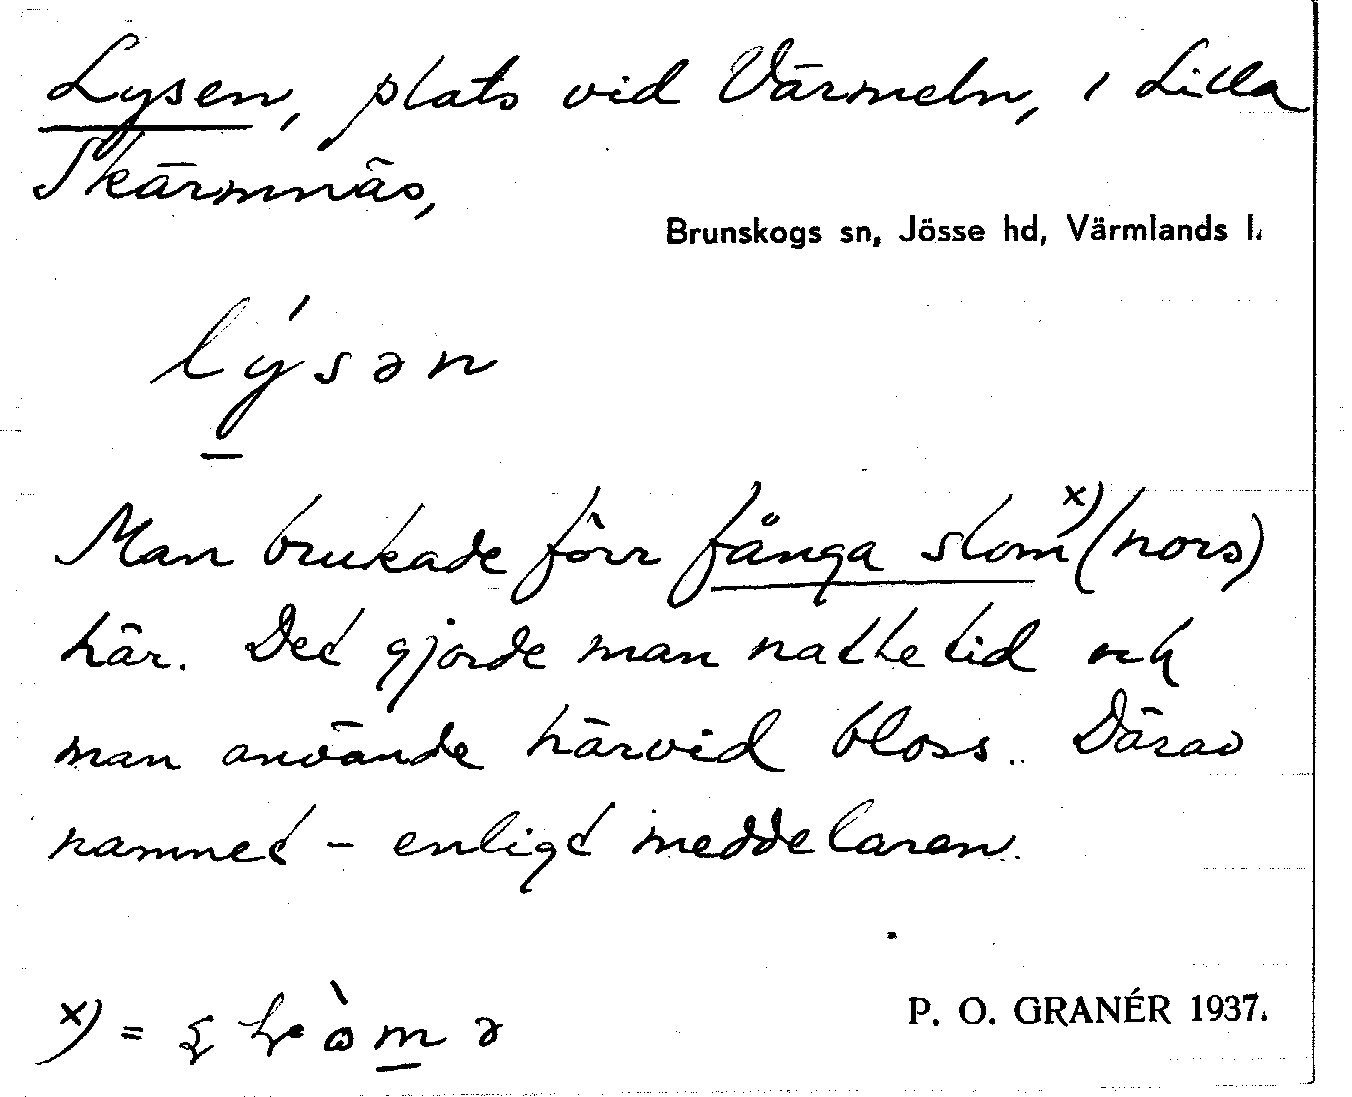 Lysen, plats vid Värmeln, i Lilla
Skärmnäs,
Brunskogs sn, Jösse hd, Värmlands l.
lýsən
Man brukade förr fånga slom x) (nors)
här. Det gjorde man nattetid och
man använde härvid bloss. Därav
namnet - enligt meddelaren.
x) =
P. O. GRANÉR 1937.